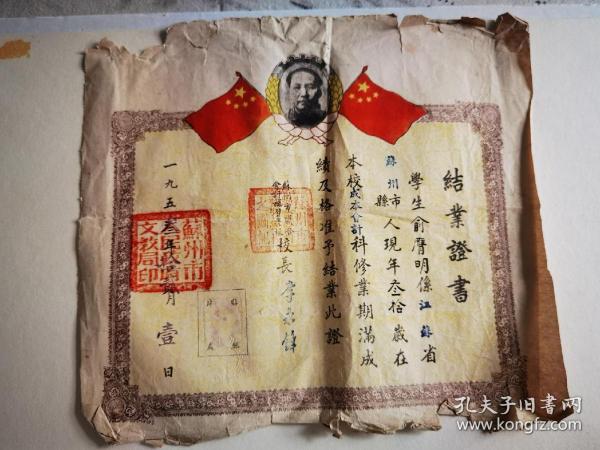 結業證書
學生俞膺明係江蘇省
蘇州市縣人現年叁拾歲在
本校成本會計科修業期滿成
績及格准予結業此證
校長李
一九五叁年 月壹日
蘇州市
文教局印
孔夫子旧书网
www.kongfz.com